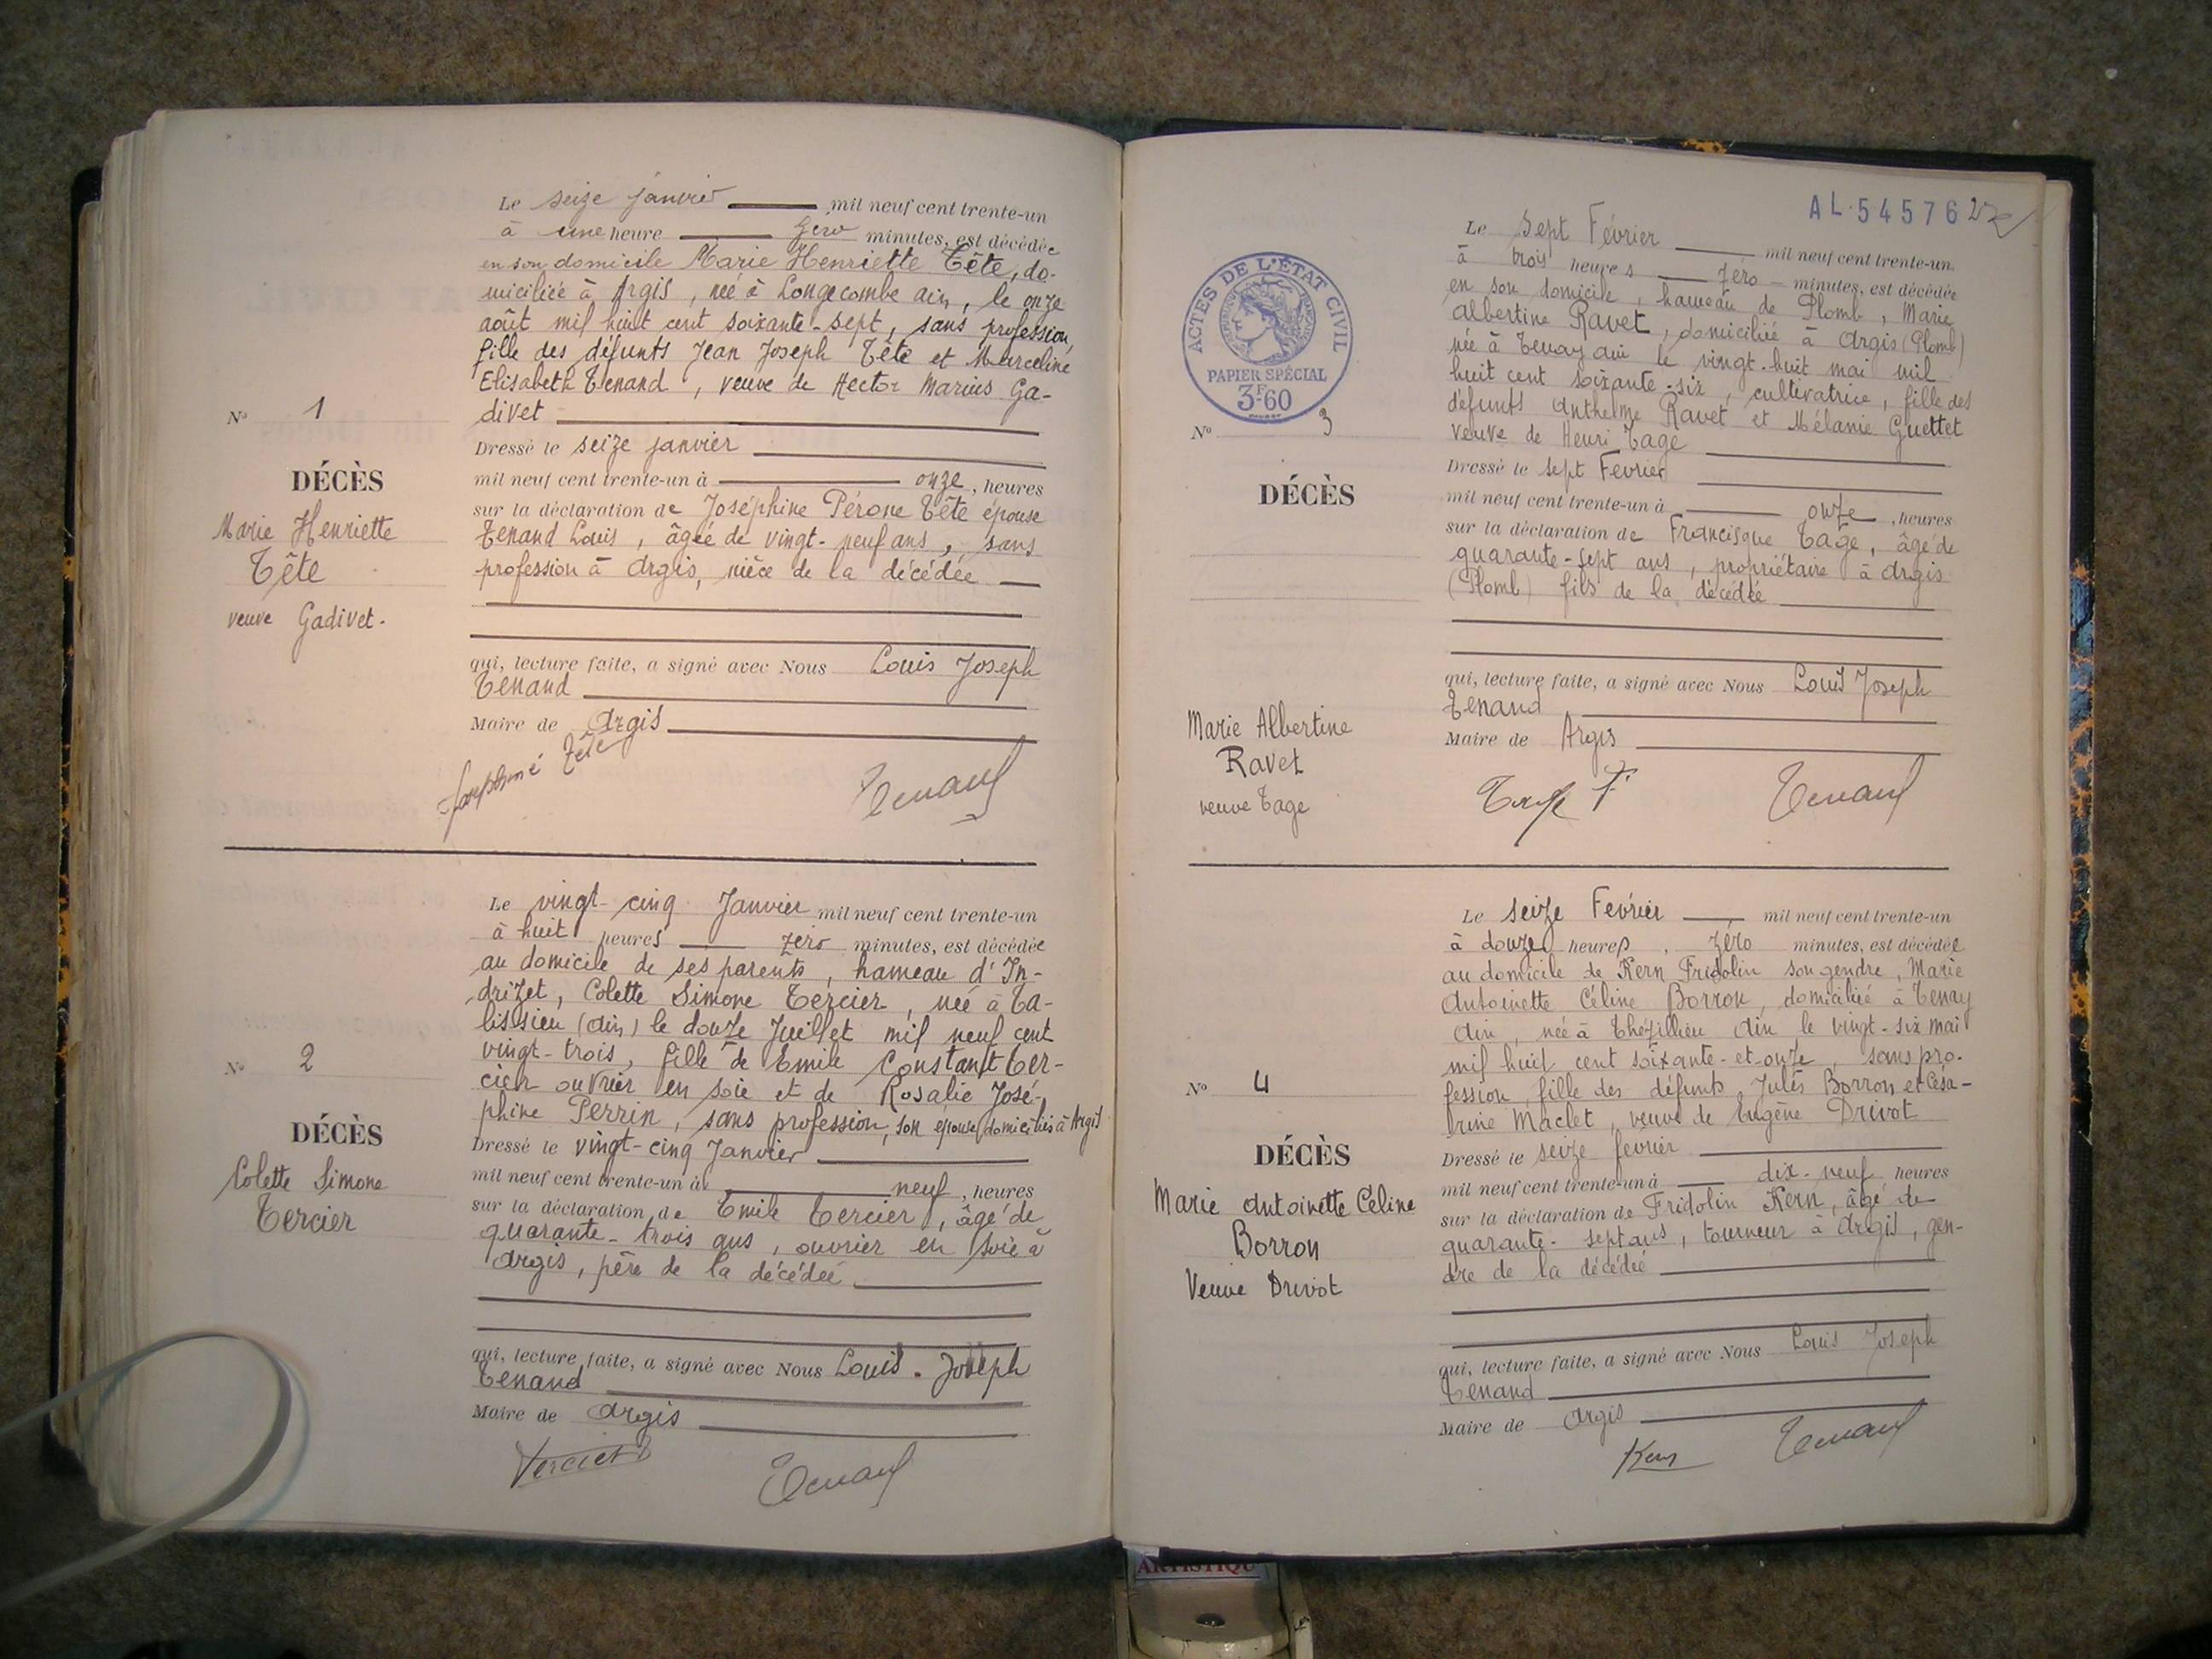 Le seize janvier mil neuf cent trente-un
à une heure zero minutes, est décédée
en son domicile Marie Henriette Tête, do-
miciliée à Argis, née à Longecombe ain, le onze
août mil huit cent soixante-sept, sans profession,
fille des défunts Jean Joseph Tête et Marceline
Elisabeth Tenand, veuve de Hector Marius Ga-
N° 1
divet
Dressé le seize janvier
DÉCÈS
mil neuf cent trente-un à onze, heures
Marie Henriette
sur la déclaration de Joséphine Pérone Tête épouse
Tenand Louis, âgée de vingt-neuf ans, sans
Tête
profession à Argis, nièce de la décédée
veuve Gadivet.
qui, lecture faite, a signé avec Nous Louis Joseph
Tenand
Maire de Argis
Joséphine Tête
Tenand
Le vingt-cinq Janvier mil neuf cent trente-un
à huit heures zéro minutes, est décédée
au domicile de ses parents, hameau d'In-
drizet, Colette Simone Tercier, née à Ta-
lissieu (Ain) le douze Juillet mil neuf cent
vingt-trois, fille de Emile Constant Ter-
N° 2
cier ouvrier en soie et de Rosalie José-
phine Perrin, sans profession, son épouse domiciliés à Argis
DÉCÈS
Dressé le vingt-cinq Janvier
Colette Simone
mil neuf cent trente-un à neuf, heures
Tercier
sur la déclaration de Emile Tercier, âgé de
quarante-trois ans, ouvrier en soie à
Argis, père de la décédée
qui, lecture faite, a signé avec Nous Louis. Joseph
Tenand
Maire de Argis
Tercier
Tenand
AL.54576
ACTES DE L'ÉTAT CIVIL
RÉPUBLIQUE FRANÇAISE
PAPIER SPÉCIAL
3F60
Le Sept Février mil neuf cent trente-un
à trois heures zéro minutes, est décédée
en son domicile, hameau de Plomb, Marie
Albertine Ravet, domiciliée à Argis (Plomb)
née à Tenay ain le vingt-huit mai mil
huit cent soixante-six, cultivatrice, fille des
défunts Anthelme Ravet et Mélanie Guettet
N° 3
veuve de Henri Tage
Dressé le sept Fevrier
DÉCÈS
mil neuf cent trente-un à onze, heures
sur la déclaration de Francisque Tage, âgé de
quarante-sept ans, propriétaire à Argis
(Plomb) fils de la décédée
qui, lecture faite, a signé avec Nous Louis Joseph
Tenand
Marie Albertine
Maire de Argis
Ravet
veuve Tage
Tage F
Tenand
Le seize Fevrier mil neuf cent trente-un
à douze heures, zéro minutes, est décédée
au domicile de Kern Fridolin son gendre, Marie
Antoinette Céline Borron, domiciliée à Tenay
Ain, née à Thézillieu Ain le vingt-six mai
mil huit cent soixante-et-onze, sans pro-
N° 4
fession, fille des défunts Jules Borron et Césa-
rine Maclet, veuve de Eugène Drivot
DÉCÈS
Dressé le seize fevrier
mil neuf cent trente-un à dix-neuf heures
Marie Antoinette Céline
sur la déclaration de Fridolin Kern, âgé de
Borron
quarante-sept ans, tourneur à Argis, gen-
dre de la décédée
Veuve Drivot
qui, lecture faite, a signé avec Nous Louis Joseph
Tenand
Maire de Argis
Kern
Tenand
ARTISTIQU